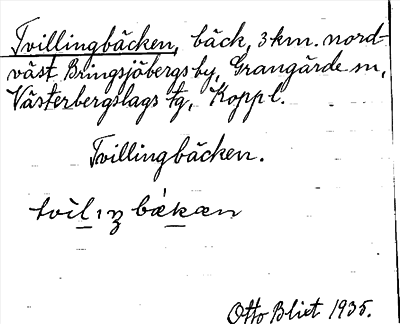 Tvillingbäcken, bäck, 3 km. nord-
väst Bringsjöbergs by, Grangärde sn,
Västerbergslags tg, Koppl.
Tvillingbäcken.
Otto Blixt 1935.